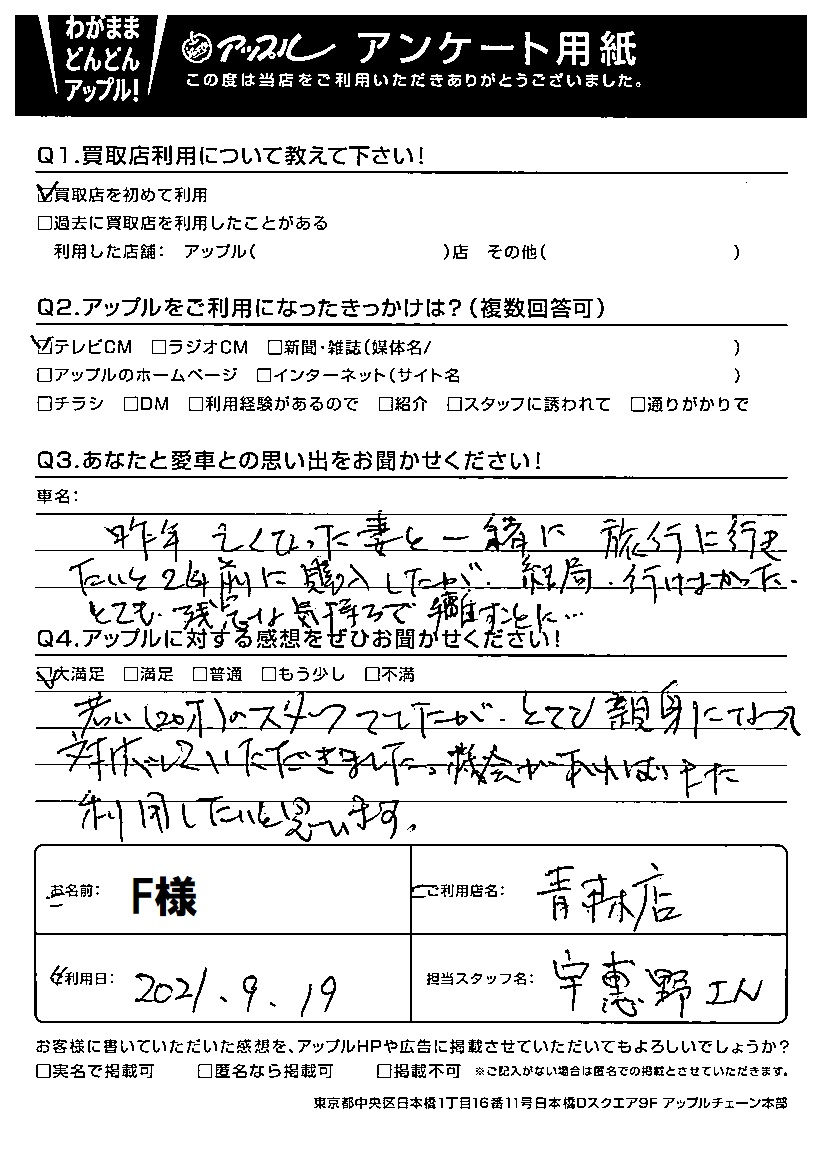 わがまま
どんどん
アップル!
アップル アンケート用紙
この度は当店をご利用いただきありがとうございました。
Q1.買取店利用について教えて下さい!
☑買取店を初めて利用
□過去に買取店を利用したことがある
利用した店舗: アップル( )店 その他( )
Q2.アップルをご利用になったきっかけは?(複数回答可)
☑テレビCM □ラジオCM □新聞・雑誌(媒体名/ )
□アップルのホームページ □インターネット(サイト名 )
□チラシ □DM □利用経験があるので □紹介 □スタッフに誘われて □通りがかりで
Q3.あなたと愛車との思い出をお聞かせください!
車名:
昨年 亡くなった妻と一緒に 旅行に行き
たいと2年前に購入したが、結局、行けなかった。
とても残念な気持ちで離すことに…
Q4.アップルに対する感想をぜひお聞かせください!
☑大満足 □満足 □普通 □もう少し □不満
若い(20才)のスタッフでしたが、とても親身になって
対応していただきました。機会があればまた
利用したいと思います。
お名前: F様
ご利用店名: 青森店
ご利用日: 2021.9.19
担当スタッフ名: 宇恵野さん
お客様に書いていただいた感想を、アップルHPや広告に掲載させていただいてもよろしいでしょうか?
□実名で掲載可 □匿名なら掲載可 □掲載不可 ※ご記入がない場合は匿名での掲載とさせていただきます。
東京都中央区日本橋1丁目16番11号日本橋Dスクエア9F アップルチェーン本部